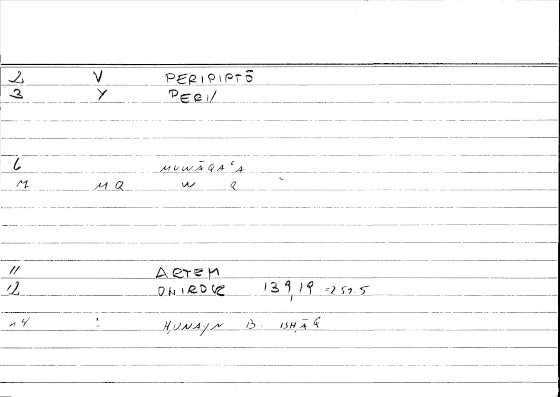 2 V PERIPIPTŌ
3 Y PERI/
6 MUWĀQAʿA
M MQ W Q
11 ARTEM
12 ONIROCR 139,19 = 257.5
14 : ḤUNAYN B. ISḤĀQ